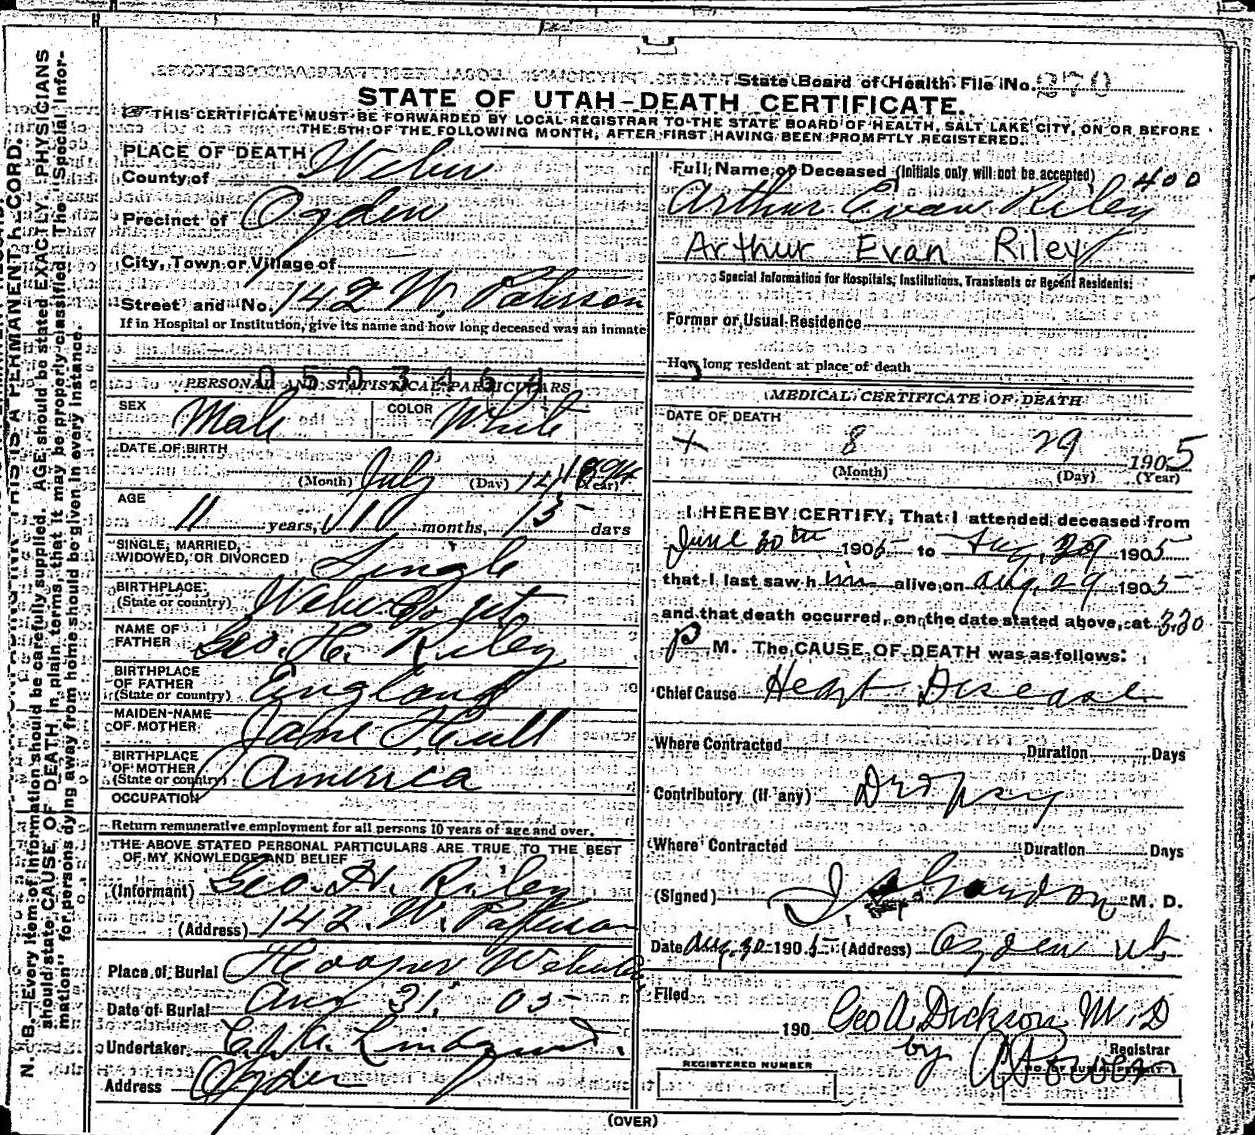 State Board of Health File No. 270
STATE OF UTAH-DEATH CERTIFICATE.
THIS CERTIFICATE MUST BE FORWARDED BY LOCAL REGISTRAR TO THE STATE BOARD OF HEALTH, SALT LAKE CITY, ON OR BEFORE
THE 5TH OF THE FOLLOWING MONTH, AFTER FIRST HAVING BEEN PROMPTLY REGISTERED.
PLACE OF DEATH
County of Weber
Precinct of Ogden
City, Town or Village of
Street and No. 142 W. Patterson
If in Hospital or Institution, give its name and how long deceased was an inmate
PERSONAL AND STATISTICAL PARTICULARS
SEX Male COLOR White
DATE OF BIRTH
(Month) July (Day) (Year)
AGE
11 years, months, 15 days
SINGLE, MARRIED,
WIDOWED, OR DIVORCED Single
BIRTHPLACE
(State or country) Weber Co Ut
NAME OF
FATHER Geo. H. Riley
BIRTHPLACE
OF FATHER
(State or country) England
MAIDEN-NAME
OF MOTHER Jane Hull
BIRTHPLACE
OF MOTHER
(State or country) America
OCCUPATION
Return remunerative employment for all persons 10 years of age and over.
THE ABOVE STATED PERSONAL PARTICULARS ARE TRUE TO THE BEST
OF MY KNOWLEDGE AND BELIEF
(Informant) Geo. H. Riley
(Address) 142 W. Patterson
Place of Burial Hooper Weber Co
Date of Burial Aug 31, 05
Undertaker Lindquist
Address Ogden
Full Name of Deceased (Initials only will not be accepted) 400
Arthur Evan Riley
Arthur Evan Riley
Special Information for Hospitals, Institutions, Transients or Recent Residents:
Former or Usual Residence
How long resident at place of death
MEDICAL CERTIFICATE OF DEATH
DATE OF DEATH
8 29 1905
(Month) (Day) (Year)
I HEREBY CERTIFY, That I attended deceased from
June 30th 1905 to Aug. 29 1905
that I last saw him alive on Aug. 29 1905
and that death occurred, on the date stated above, at 3.30
P M. The CAUSE OF DEATH was as follows:
Chief Cause Heart Disease
Where Contracted Duration Days
Contributory (if any) Dropsy
Where Contracted Duration Days
(Signed) Gordon M. D.
Date Aug. 30 1905 (Address) Ogden Ut
Filed
190 Geo A. Dickson M.D
Registrar
by
REGISTERED NUMBER
NO. OF BURIAL PERMIT
(OVER)
N. B.—Every item of information should be carefully supplied. AGE should be stated EXACTLY. PHYSICIANS
should state CAUSE OF DEATH in plain terms, that it may be properly classified. The "Special Infor-
mation" for persons dying away from home should be given in every instance.
THIS IS A PERMANENT RECORD.